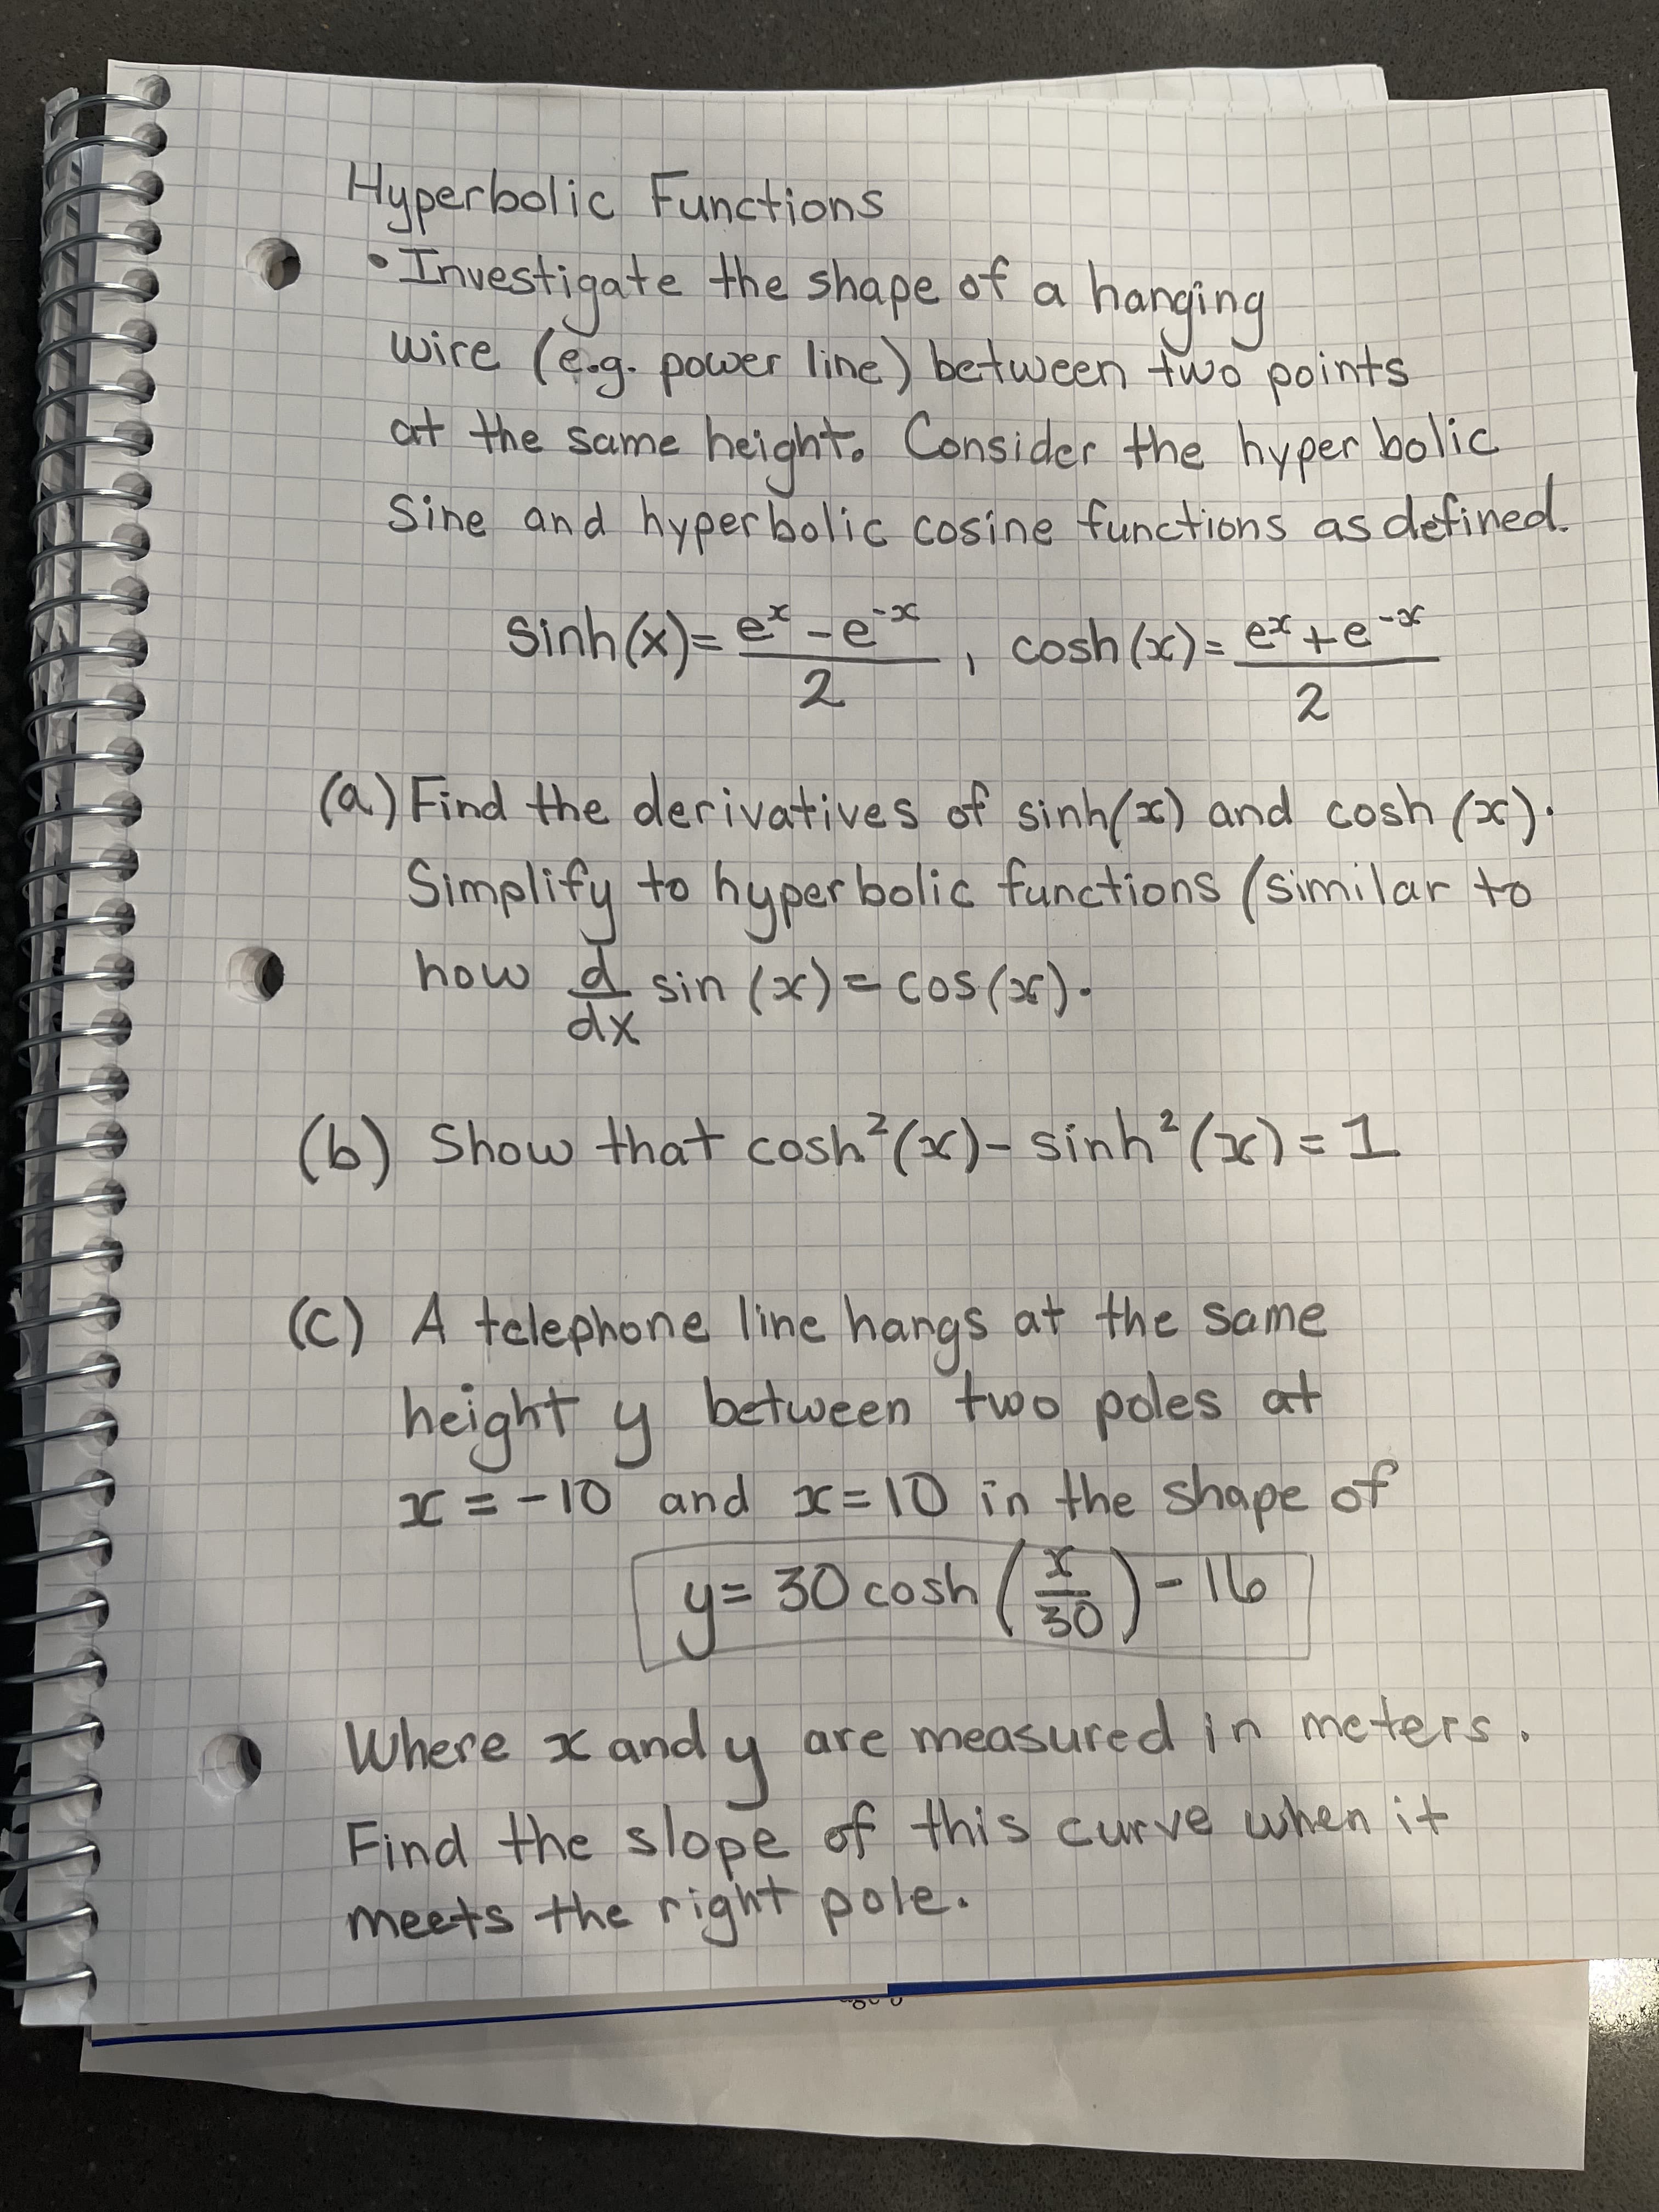 Hyperbolic Functions
• Investigate the shape of a hanging
wire (e.g. power line) between two points
at the same height. Consider the hyperbolic
Sine and hyperbolic cosine functions as defined.
sinh(x) = (e^x - e^-x)/2 , cosh(x) = (e^x + e^-x)/2
(a) Find the derivatives of sinh(x) and cosh(x).
Simplify to hyperbolic functions (similar to
how d/dx sin(x) = cos(x).
(b) Show that cosh²(x) - sinh²(x) = 1
(c) A telephone line hangs at the same
height y between two poles at
x = -10 and x = 10 in the shape of
y = 30 cosh(x/30) - 16
Where x and y are measured in meters.
Find the slope of this curve when it
meets the right pole.